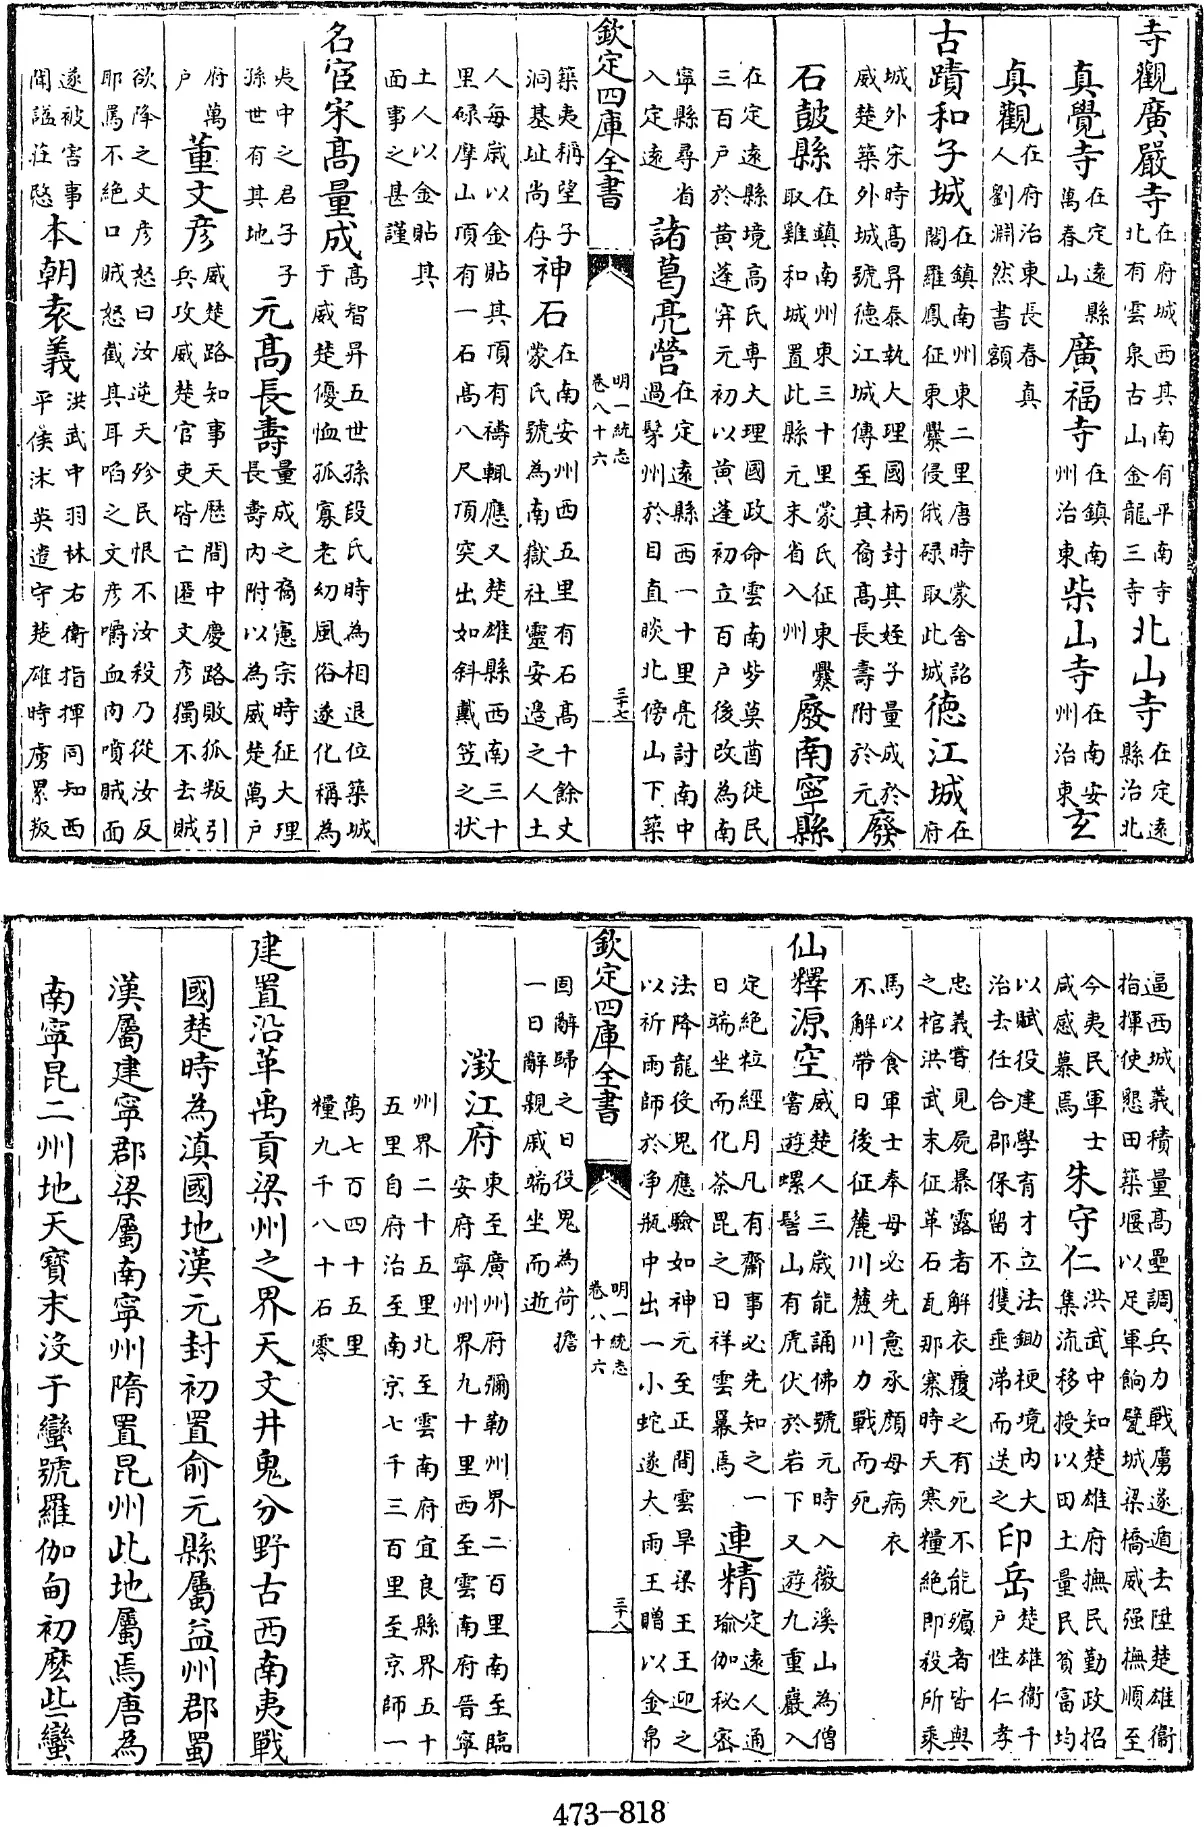 寺觀廣嚴寺在府城西其南有平南寺北有雲泉古山金龍三寺北山寺在定遠縣治北
真覺寺在定遠縣萬春山廣福寺在鎮南州治東柴山寺在南安州治東玄
真觀在府治東長春真人劉淵然書額
古蹟和子城在鎮南州東二里唐時蒙舍詔閣羅鳳征東爨侵俄碌取此城德江城在府
城外宋時高昇泰執大理國柄封其姪子量成於威楚築外城號德江城傳至其裔高長壽附於元廢
石鼓縣在鎮南州東三十里蒙氏征東爨取雞和城置此縣元末省入州廢南寧縣
在定遠縣境高氏專大理國政命雲南些莫酋徙民三百戶於黃蓬穽元初以黃蓬初立百戶後改為南
寧縣尋省入定遠諸葛亮營在定遠縣西一十里亮討南中過髳州於目直睒北傍山下築
欽定四庫全書 明一統志卷八十六 三十七
築夷稱望子洞基址尚存神石在南安州西五里有石高十餘丈蒙氏號為南獄社靈安邊之人土
人每歲以金貼其頂有禱輒應又楚雄縣西南三十里碌摩山頂有一石高八尺頂突出如斜戴笠之狀
土人以金貼其面事之甚謹
名宦宋高量成高智昇五世孫段氏時為相退位築城于威楚優恤孤寡老幼風俗遂化稱為
夷中之君子子孫世有其地元高長壽量成之裔憲宗時征大理長壽內附以為威楚萬戶
府萬戶董文彥威楚路知事天歷間中慶路敗狐叛引兵攻威楚官吏皆亡匿文彥獨不去賊
欲降之文彥怒曰汝逆天殄民恨不汝殺乃從汝反耶罵不絕口賊怒截其耳啗之文彥嚼血肉噴賊面
遂被害事聞諡莊愍本朝袁義洪武中羽林右衛指揮同知西平侯沐英遣守楚雄時虜累叛
逼西城義積量高壘調兵力戰虜遂遁去陞楚雄衞指揮使懇田築堰以足軍餉甓城梁橋威强撫順至
今夷民軍士咸感慕焉朱守仁洪武中知楚雄府撫民勤政招集流移授以田土量民貧富均
以賦役建學有才立法鋤梗境內大治去任合郡保留不獲垂涕而送之印岳楚雄衞千戶性仁孝
忠義嘗見屍暴露者解衣覆之有死不能殯者皆與之棺洪武末征革石瓦那寨時天寒糧絕即殺所乘
馬以食軍士奉母必先意承顏母病衣不解帶日後征麓川麓川力戰而死
仙釋源空威楚人三歲能誦佛號元時入薇溪山為僧嘗遊螺髻山有虎伏於岩下又遊九重巖入
定絕粒經月凡有齋事必先知之一日端坐而化茶毘之日祥雲羃焉連精定遠人通瑜伽秘密
法降龍役鬼應驗如神元至正間雲旱梁王王迎之以祈雨師於淨瓶中出一小蛇遂大雨王贈以金帛
欽定四庫全書 明一統志卷八十六 三十八
固辭歸之日役鬼為荷擔一日辭親戚端坐而逝
澂江府東至廣州府彌勒州界二百里南至臨安府寧州界九十里西至雲南府晉寧
州界二十五里北至雲南府宜良縣界五十五里自府治至南京七千三百里至京師一
萬七百四十五里糧九千八十石零
建置沿革禹貢梁州之界天文井鬼分野古西南夷戰
國楚時為滇國地漢元封初置俞元縣屬益州郡蜀
漢屬建寧郡梁屬南寧州隋置昆州此地屬焉唐為
南寧昆二州地天寶末沒于蠻號羅伽甸初麽些蠻
473-818